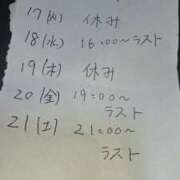 17(火) 休み
18(水) 16:00〜ラスト
19(木) 休み
20(金) 19:00〜
ラスト
21(土) 21:00〜
ラスト